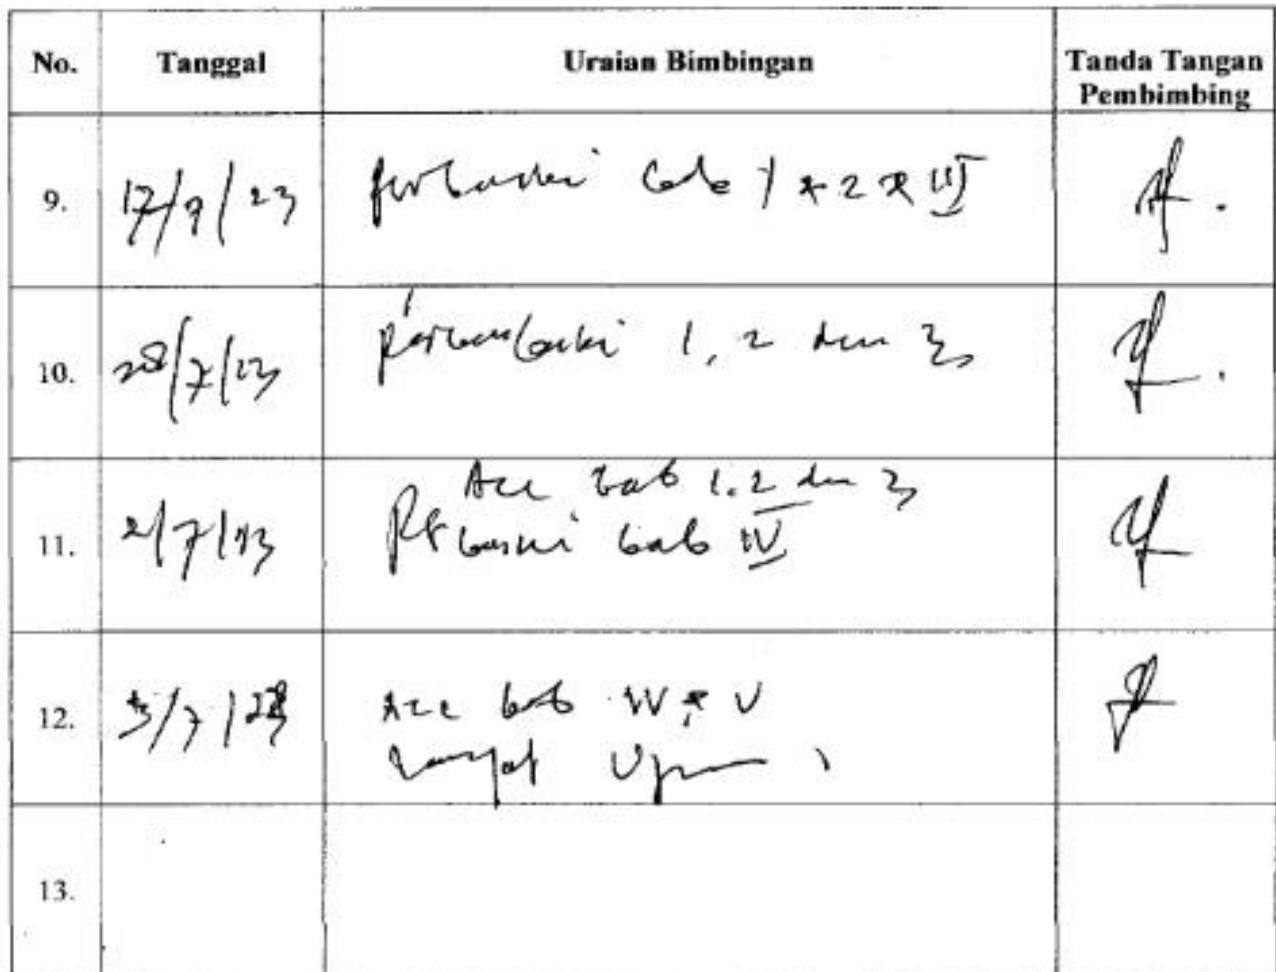 No. Tanggal Uraian Bimbingan Tanda Tangan Pembimbing
9. 17/7/23 Perbaiki bab 1 & 2 & III
10. 28/7/23 1, 2 dan 3
11. /7/23 Acc bab 1, 2 dan 3
Perbaiki bab IV
12. /7/23 Acc bab IV & V
13.